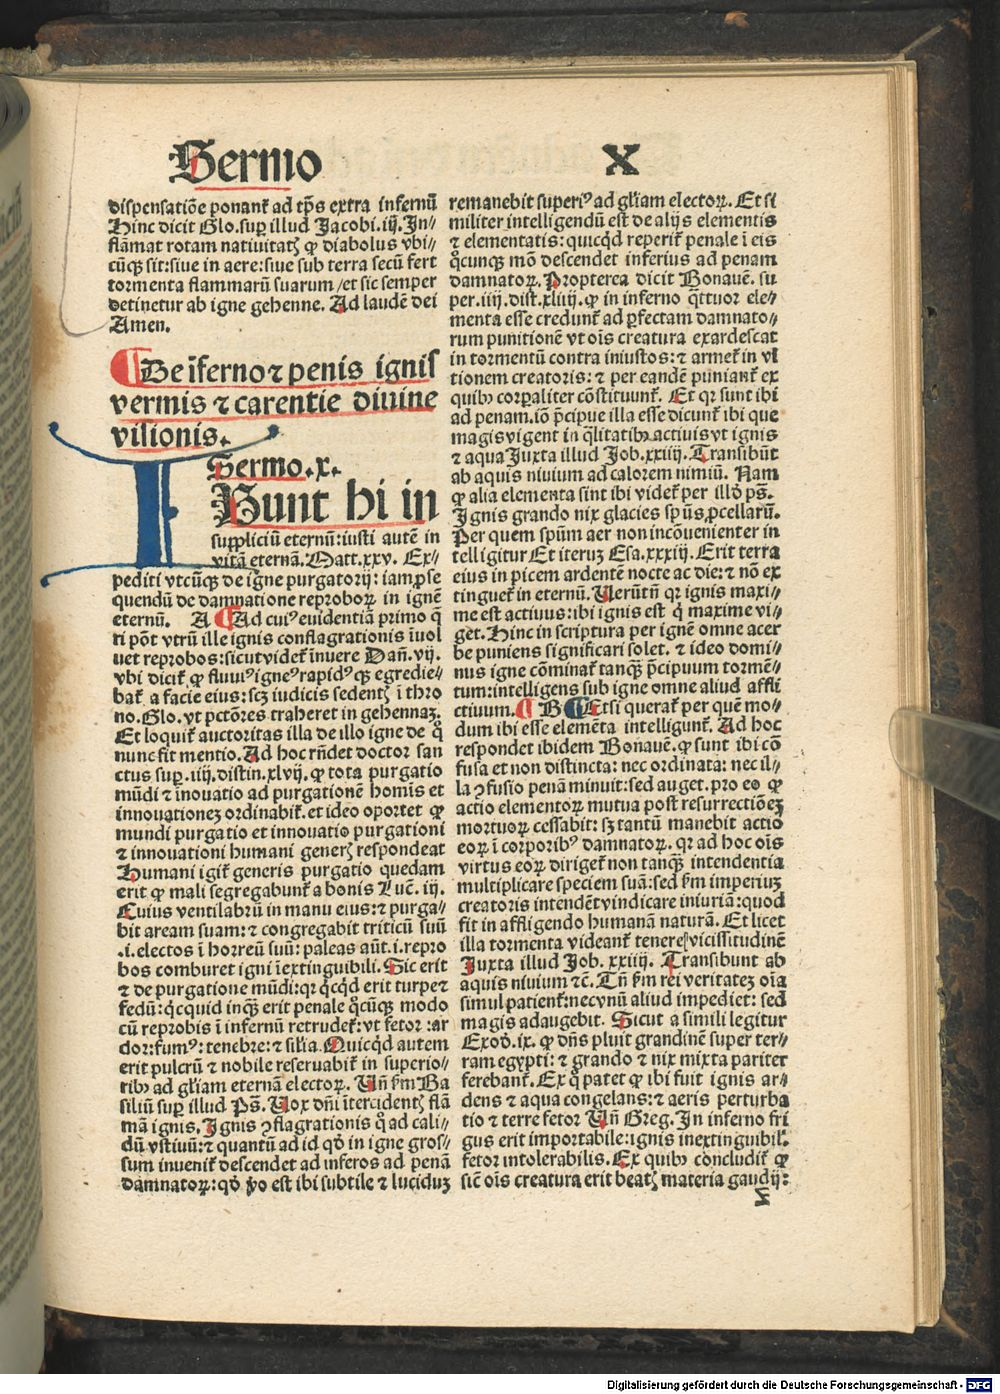 Sermo X
dispensatiōe ponanť ad tp̄s extra infernū
Hinc dicit Glo. sup illud Jacobi. iij. In⸗
flāmat rotam natiuitatꝭ ꝙ diabolus vbi⸗
cūqꝫ sit: siue in aere: siue sub terra secū fert
tormenta flammarū suarum / et sic semper
detinetur ab igne gehenne. Ad laudē dei
Amen.
¶ De īferno ⁊ penis ignis
vermis ⁊ carentie diuine
visionis.
Sermo. x.
IBunt hi in
suppliciū eternū: iusti autē in
vitā eternā. Matt. xxv. Ex⸗
pediti vtcūqꝫ de igne purgatorij: iam ꝓse
quendū de damnatione reproboꝝ in ignē
eternū. A ¶ Ad cuiꝰ euidentiā primo q̄
ri pōt vtrū ille ignis conflagrationis īuol
uet reprobos: sicut videť īnuere Dañ. vij.
vbi diciť ꝙ fluuiꝰ igneꝰ rapidꝰqꝫ egredie⸗
bať a facie eius: scꝫ iudicis sedentꝭ ī thro
no. Glo. vt pctōres traheret in gehennaꝫ.
Et loquiť auctoritas illa de illo igne de q̊
nunc fit mentio. Ad hoc rñdet doctor san
ctus sup. iiij. distin. xlvij. ꝙ tota purgatio
mūdi ⁊ īnouatio ad purgationē homīs et
innouationeꝫ ordinabiť. et ideo oportet ꝙ
mundi purgatio et innouatio purgationi
⁊ innouationi humani generꝭ respondeat
Humani igiť generis purgatio quedam
erit ꝙ mali segregabunť a bonis Luc̄. iij.
Cuius ventilabrū in manu eius: ⁊ purga⸗
bit aream suam: ⁊ congregabit triticū suū
.i. electos ī horreū suū: paleas aūt .i. repro
bos comburet igni īextinguibili. Sic erit
⁊ de purgatione mūdi: qꝛ qͥcqͥd erit turpe ⁊
fedū: qͥcquid inqꝫ erit penale q̊cūqꝫ modo
cū reprobis ī infernū retrudeť: vt fetor: ar
dor: fumꝰ: tenebre: ⁊ silia. Quicqͥd autem
erit pulcrū ⁊ nobile reseruabiť in superio⸗
ribꝫ ad gl̄iam eternā electoꝝ. Uñ ẜm Ba
siliū sup illud Ps̄. Uox dn̄i ītercidentꝭ flā
mā ignis. Ignis ꝯflagrationis q̊ ad cali⸗
dū vstiuū: ⁊ quantū ad id qd̓ in igne gros⸗
sum inueniť descendet ad inferos ad penā
damnatoꝝ: qd̓ ꝟo est ibi subtile ⁊ luciduꝫ
remanebit superiꝰ ad gl̄iam electoꝝ. Et si
militer intelligendū est de alijs elementis
⁊ elementatis: quicqͥd reperiť penale ī eis
q̊cunqꝫ mō descendet inferius ad penam
damnatoꝝ. Propterea dicit Bonauē. su
per. iiij. dist. xliiij. ꝙ in inferno qͣttuor ele⸗
menta esse credunť ad ꝑfectam damnato⸗
rum punitionē vt oīs creatura exardescat
in tormentū contra iniustos: ⁊ armeť in vl
tionem creatoris: ⁊ per eandē punianť ex
quibꝫ corꝑaliter cōstituunť. Et qꝛ sunt ibi
ad penam. iō p̄cipue illa esse dicunť ibi que
magis vigent in qͣlitatibꝫ actiuis vt ignis
⁊ aqua Juxta illud Job. xxiiij. Transibūt
ab aquis niuium ad calorem nimiū. Nam
ꝙ alia elementa sint ibi videť per illd̓ ps̄.
Ignis grando nix glacies sp̄ūs ꝓcellarū.
Per quem spūm aer non incōuenienter in
telligitur Et iteruꝫ Esa. xxxiiij. Erit terra
eius in picem ardentē nocte ac die: ⁊ nō ex
tingueť in eternū. Uerūtñ qꝛ ignis maxi⸗
me est actiuus: ibi ignis est qͥ maxime vi⸗
get. Hinc in scriptura per ignē omne acer
be puniens significari solet. ⁊ ideo domi⸗
nus igne cōminať tanqꝫ p̄cipuum tormē⸗
tum: intelligens sub igne omne aliud affli
ctiuum. ¶ B ¶ Et si querať per quē mo⸗
dum ibi esse elemēta intelligunť. Ad hoc
respondet ibidem Bonauē. ꝙ sunt ibi cō
fusa et non distincta: nec ordinata: nec il⸗
la ꝯfusio penā minuit: sed auget. pro eo ꝙ
actio elementoꝝ mutua post resurrectiōeꝫ
mortuoꝝ cessabit: sꝫ tantū manebit actio
eoꝝ ī corporibꝰ damnatoꝝ. qꝛ ad hoc oīs
virtus eoꝝ dirigeť non tanqꝫ intendentia
multiplicare speciem suā: sed ẜm imperiuꝫ
creatoris intendēt vindicare iniuriā: quod
fit in affligendo humanā naturā. Et licet
illa tormenta videanť tenere vicissitudinē
Juxta illud Job. xxiiij. Transibunt ab
aquis niuium ⁊c̄. Tñ ẜm rei veritateꝫ oīa
simul patienť: nec vnū aliud impediet: sed
magis adaugebit. Sicut a simili legitur
Exod̓. ix. ꝙ dn̄s pluit grandinē super ter⸗
ram egypti: ⁊ grando ⁊ nix mixta pariter
ferebanť. Ex qͦ patet ꝙ ibi fuit ignis ar⸗
dens ⁊ aqua congelans: ⁊ aeris perturba
tio ⁊ terre fetor Uñ Greg. In inferno fri
gus erit importabile: ignis inextinguibil̓.
fetor intolerabilis. Ex quibꝫ concludiť ꝙ
sic̄ oīs creatura erit beatꝭ materia gaudij:
Digitalisierung gefördert durch die Deutsche Forschungsgemeinschaft - DFG